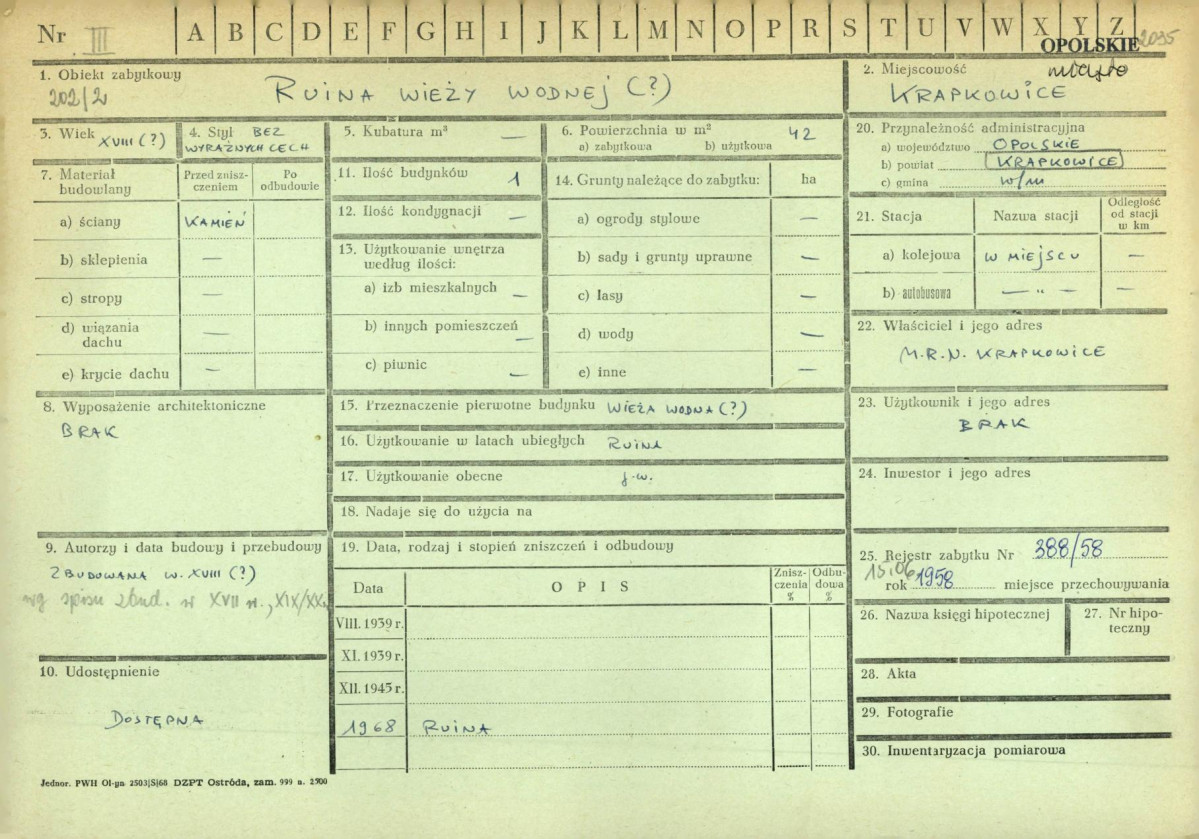 Nr III A B C D E F G H I J K L M N O P R S T U V W X Y Z 2095
OPOLSKIE
1. Obiekt zabytkowy
202/2 RUINA WIEŻY WODNEJ (?)
2. Miejscowość miasto
KRAPKOWICE
3. Wiek XVIII (?)
4. Styl BEZ
WYRAŹNYCH CECH
5. Kubatura m³ —
6. Powierzchnia w m² 42
a) zabytkowa b) użytkowa
7. Materiał
budowlany
Przed znisz-
czeniem
Po
odbudowie
a) ściany KAMIEŃ
b) sklepienia —
c) stropy —
d) wiązania
dachu —
e) krycie dachu —
11. Ilość budynków 1
12. Ilość kondygnacji —
13. Użytkowanie wnętrza
według ilości:
a) izb mieszkalnych —
b) innych pomieszczeń —
c) piwnic —
14. Grunty należące do zabytku: ha
a) ogrody stylowe —
b) sady i grunty uprawne —
c) lasy —
d) wody —
e) inne —
20. Przynależność administracyjna
a) województwo OPOLSKIE
b) powiat KRAPKOWICE
c) gmina w/m
21. Stacja Nazwa stacji
Odległość
od stacji
w km
a) kolejowa W MIEJSCU —
b) autobusowa — „ — —
22. Właściciel i jego adres
M.R.N. KRAPKOWICE
8. Wyposażenie architektoniczne
BRAK
15. Przeznaczenie pierwotne budynku WIEŻA WODNA (?)
16. Użytkowanie w latach ubiegłych RUINA
17. Użytkowanie obecne j.w.
18. Nadaje się do użycia na
23. Użytkownik i jego adres
BRAK
24. Inwestor i jego adres
9. Autorzy i data budowy i przebudowy
ZBUDOWANA W. XVIII (?)
wg spisu zbud. w XVII w., XIX/XX
19. Data, rodzaj i stopień zniszczeń i odbudowy
Data OPIS
Znisz-
czenia
%
Odbu-
dowa
%
VIII. 1939 r.
XI. 1939 r.
XII. 1945 r.
1968 RUINA
25. Rejestr zabytku Nr 388/58
15.06
rok 1958 miejsce przechowywania
26. Nazwa księgi hipotecznej
27. Nr hipo-
teczny
28. Akta
29. Fotografie
30. Inwentaryzacja pomiarowa
10. Udostępnienie
DOSTĘPNA
Jednor. PWH Ol-yn 2503|S|68 DZPT Ostróda, zam. 999 n. 2500